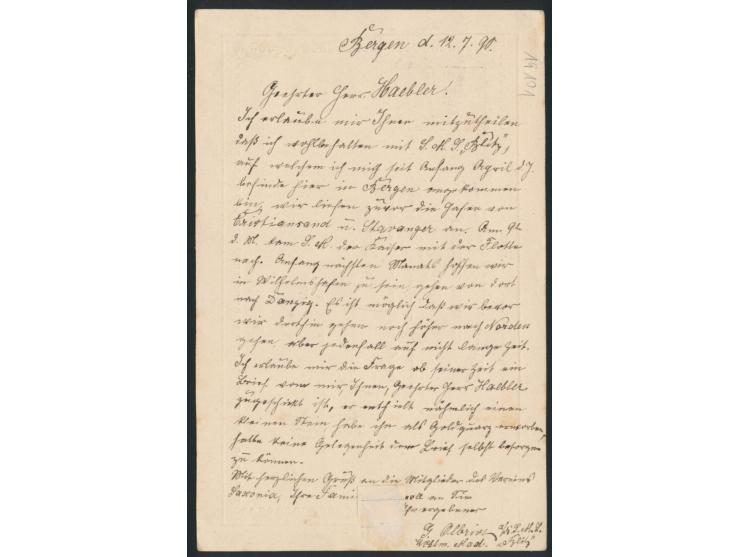 Bergen d. 12.7.90.
19101
Geehrter Herr Haebler!
Ich erlaube mir Ihnen mitzutheilen
daß ich wohlbehalten mit S. M. S. „Blitz",
auf welchem ich mich seit Anfang April d. J.
befinde hier in Bergen angekommen
bin, wir liefen zuvor die Hafen von
Kristiansand u. Stavanger an. Am 9t
d. M. kam S. M. der Kaiser mit der Flotte
nach. Anfang nächsten Monats hoffen wir
in Wilhelmshafen zu sein, gehen von dort
nach Danzig. Es ist möglich daß wir bevor
wir dorthin gehen noch höher nach Norden
gehen, aber jedenfall auf nicht lange Zeit.
Ich erlaube mir die Frage ob seiner Zeit ein
Brief von mir, Ihnen, Geehrter Herr Haebler
zugeschickt ist, er enthielt nähmlich einen
kleinen Stein habe ihn als Goldquarz erworben,
hatte keine Gelegenheit den Brief selbst besorgen
zu können.
Mit herzlichen Gruß an die Mitglieder des Vereins
Saxonia, Ihre an Sie
Ihr ergebener
G. S. M. S.
"Blitz"